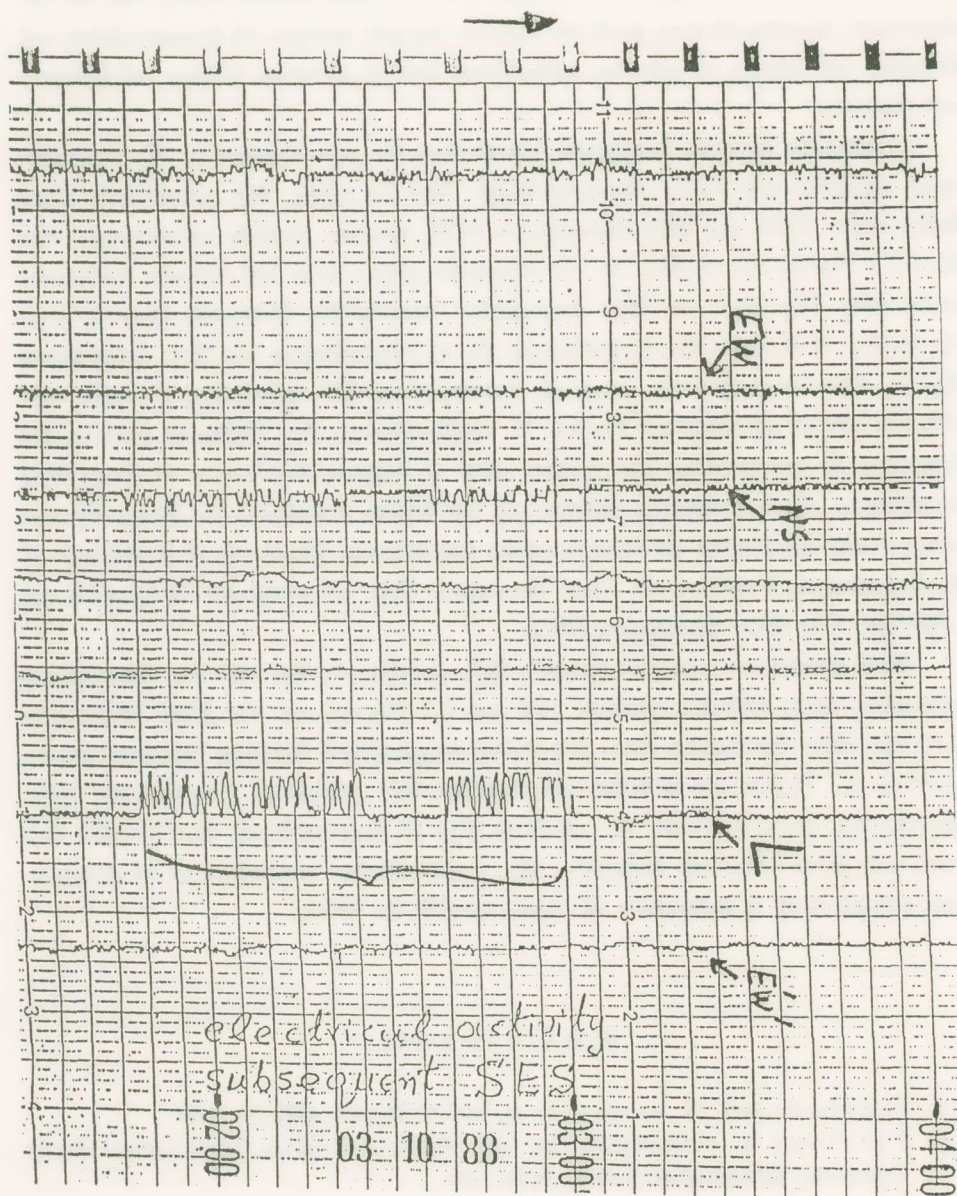 11
10
9
EW
8
7
NS
6
5
L
3
2
E'W'
electrical activity
subsequent SES
1
02 00
03 10 88
03 00
04 00